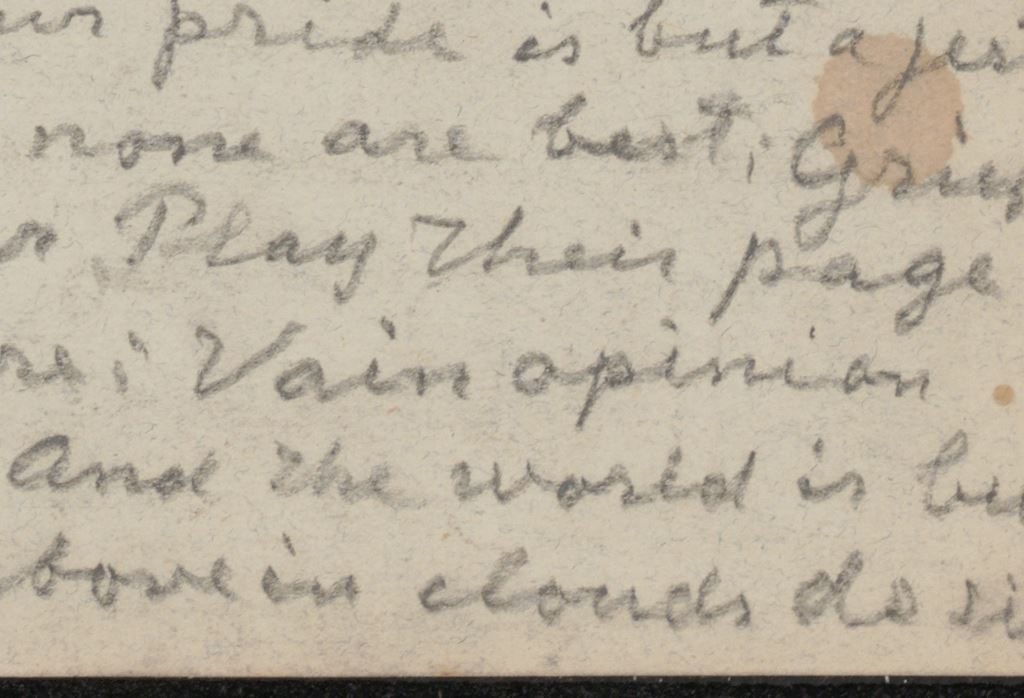 our pride is but a jest
none are best; Grief
Play their page
Vain opinion
And the world is but
bove in clouds do si